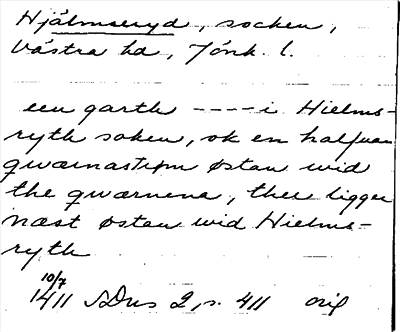 Hjälmseryd, socken,
Västra hd, Jönk. l.
een garth ---- i Hielms-
ryth soken, ok en halfuan
qwærnastrøm østan wid
the qwærnena, ther ligger
næst østan wid Hielms-
ryth
10/7
1411 SDns 2, s. 411 orig